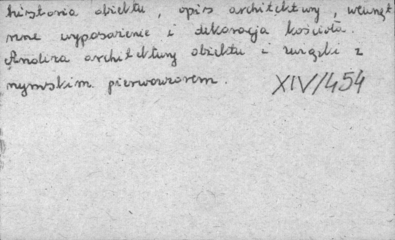 historia obiektu, opis architektury, wewnęt
rzne wyposażenie i dekoracja kościoła.
Analiza architektury obiektu i związki z
rzymskim pierwowzorem. XIV/454